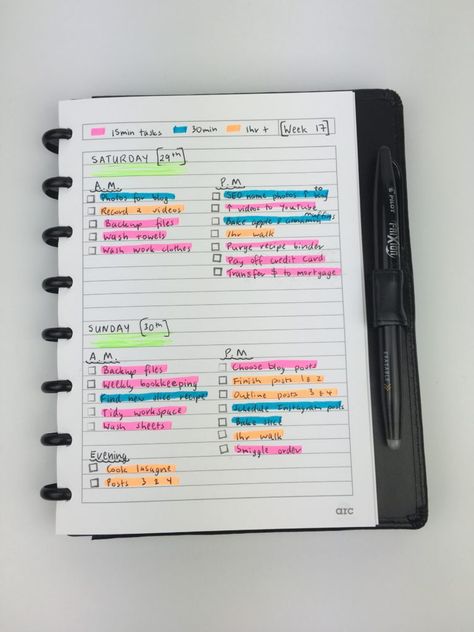 15min tasks 30min 1hr + [Week 17]
SATURDAY [29th]
A.M.
Photos for blog
Record 2 videos
Backup files
Wash towels
Wash work clothes
P.M
SEO name photos ↑ to blog
↑ videos to YouTube
Bake apple & cinnamon muffins
1hr walk
Purge recipe binder
Pay off credit card
Transfer $ to mortgage
SUNDAY [30th]
A.M.
Backup files
Weekly bookkeeping
Find new slice recipe
Tidy workspace
Wash sheets
P.M.
Choose blog posts
Finish posts 1 & 2
Outline posts 3 & 4
Schedule Instagram posts
Bake slice
1hr walk
Smiggle order
Evening
Cook lasagne
Posts 3 & 4
arc
PILOT FriXion
ERASABLE